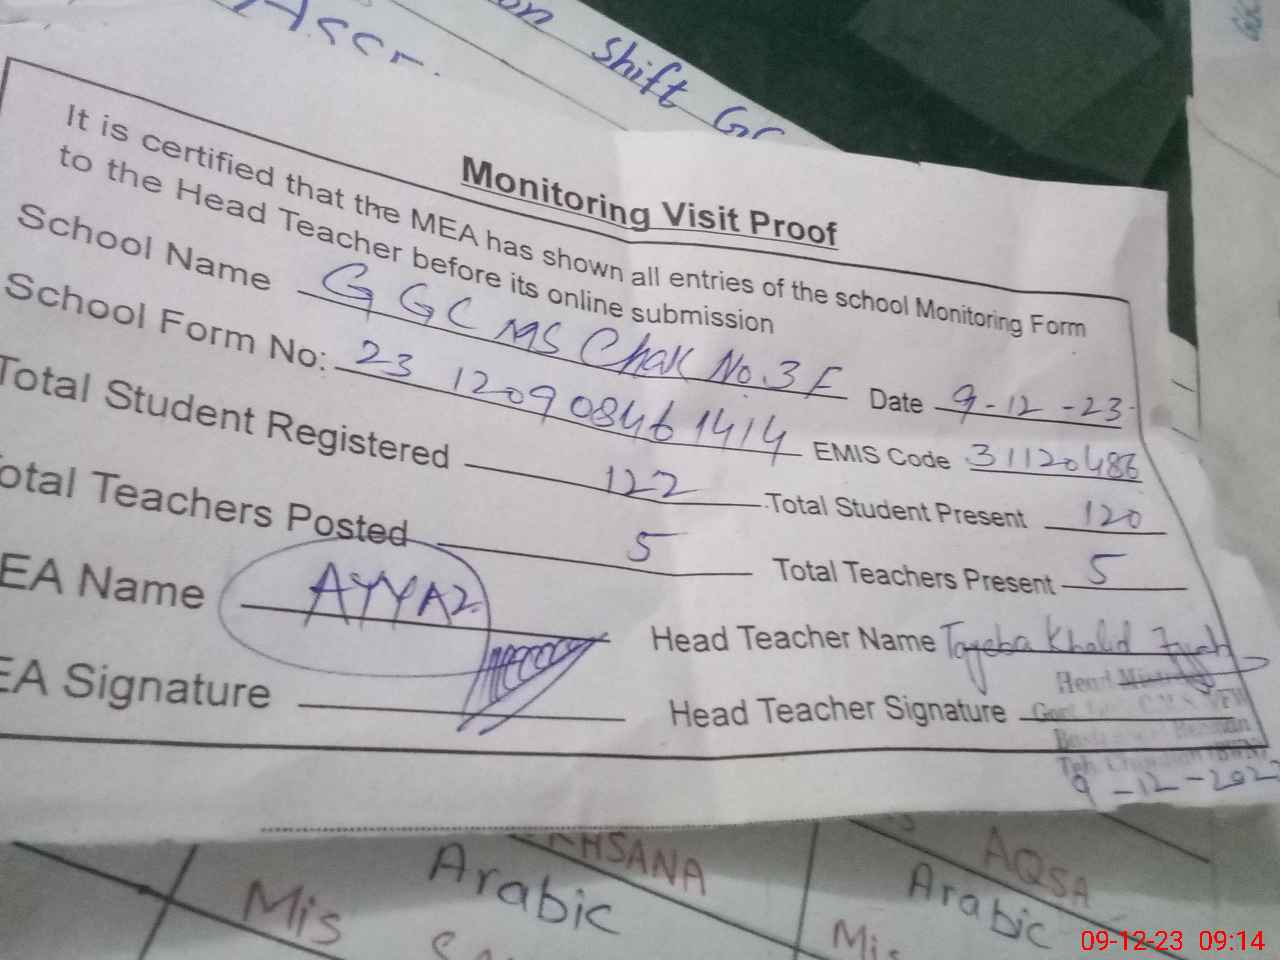 Ascr.
on Shift
Monitoring Visit Proof
It is certified that the MEA has shown all entries of the school Monitoring Form
to the Head Teacher before its online submission
School Name GGCMS Chak No. 3 F Date 9-12-23
School Form No: 23 1209 08461414 EMIS Code 31120486
Total Student Registered 122 Total Student Present 120
otal Teachers Posted 5 Total Teachers Present 5
EA Name AYYAZ Head Teacher Name Tayeba Khalid
EA Signature Head Teacher Signature
Head
9-12-202
HSANA AQSA
Arabic Arabic
Mis Mis
09-12-23 09:14